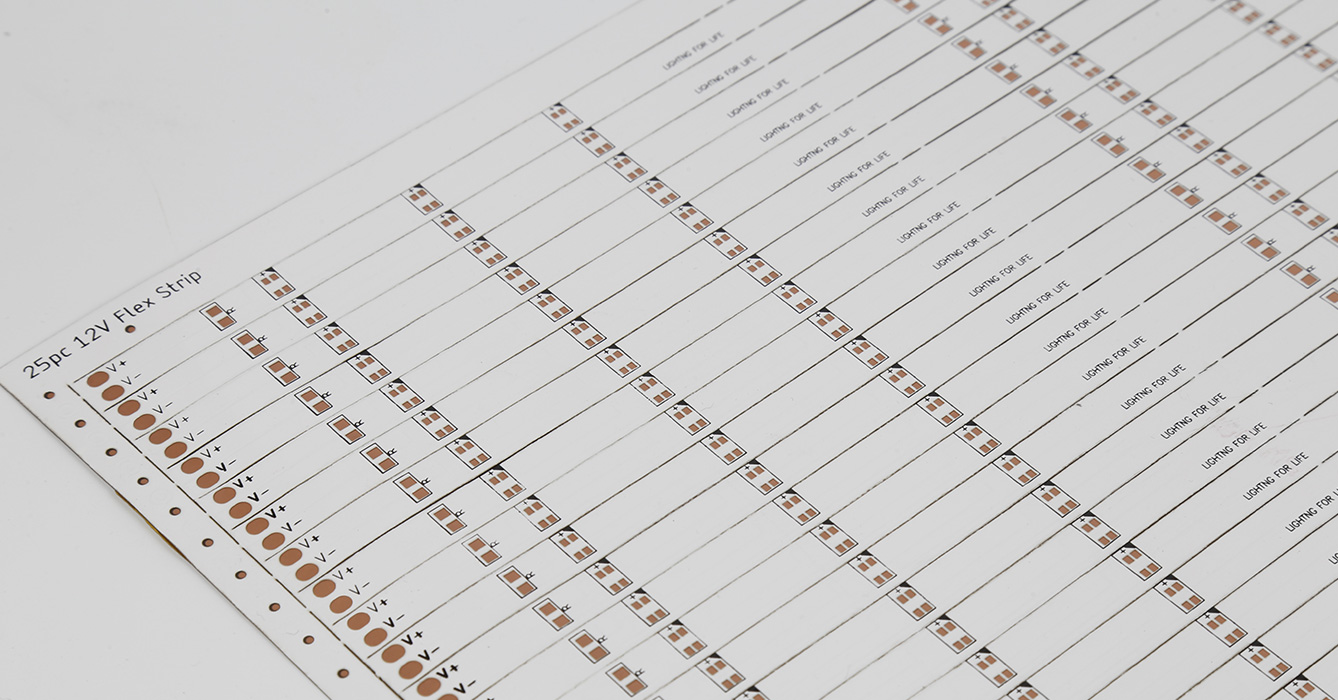 25pc 12V Flex Strip
V+
V-
V+
V-
V+
V-
V+
V-
V+
V-
V+
V-
V+
V-
V+
V-
V+
V-
V+
V-
V+
V-
LIGHTNG FOR LIFE
LIGHTNG FOR LIFE
LIGHTNG FOR LIFE
LIGHTNG FOR LIFE
LIGHTNG FOR LIFE
LIGHTNG FOR LIFE
LIGHTNG FOR LIFE
LIGHTNG FOR LIFE
LIGHTNG FOR LIFE
LIGHTNG FOR LIFE
LIGHTNG FOR LIFE
LIGHTNG FOR LIFE
LIGHTNG FOR LIFE
LIGHTNG FOR LIFE
LIGHTNG FOR LIFE
LIGHTNG FOR LIFE
LIGHTNG FOR LIFE
LIGHTNG FOR